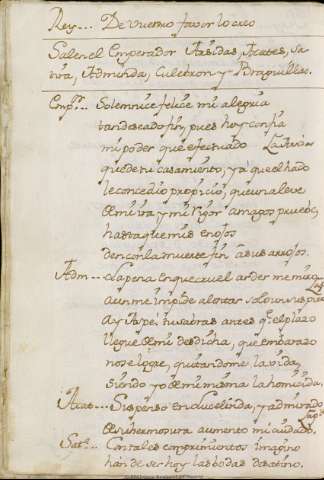 Rey... De vuestro favor lo creo
Salen el Emperador Atreides, Acates, Sa
tira, Admunda, Celedron y Braquilles.
Emp.r... Solemnice felice mi alegria
tan deseado fin, pues hoy confia
mi poder que efectuado
quede tu casamiento, ya que el hado
le concedio propicio, que una leve
de mi ira y mi rigor amagos pruebe,
hasta que mis enojos
den con la muerte fin à sus arrojos.
Adm... La pena en que cruel arder me miro
aun me impide alentar solo un suspiro
Ay Jaspe, tu sabras antes q.e el plazo
llegue de mi desdicha, que embarazo
no se logre, quitandome la vida,
siendo yo de mi misma la homicida,
Acat... Suspenso en Lucelinda, y admirado
de su hermosura aumento mi cuidado.
Sat.a... Con tales cumplimientos imagino
han de ser hoy las bodas desatino.